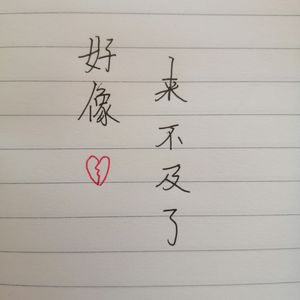 好像
来不及了